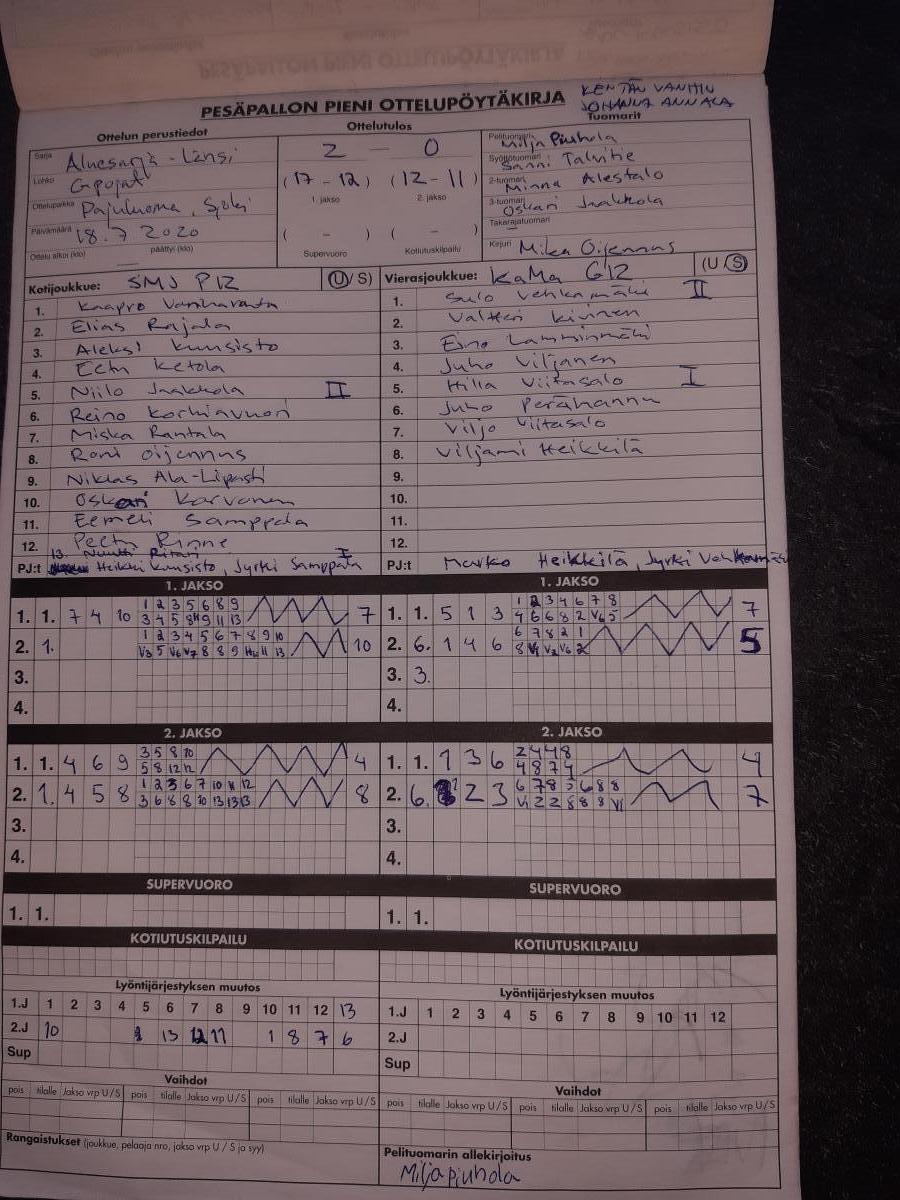 PESÄPALLON PIENI OTTELUPÖYTÄKIRJA
KENTÄN VANHIN
JOHANNA ANNALA
Ottelun perustiedot
Ottelutulos
Tuomarit
Sarja Aluesarja - Länsi
Lohko G-pojat
Ottelupaikka Pajuluoma, Sjoki
Päivämäärä 18.7 2020
Ottelu alkoi (klo) päättyi (klo)
2 — 0
(17 - 12) (12 - 11)
1. jakso 2. jakso
( - ) ( - )
Supervuoro Kotiutuskilpailu
Pelituomari Milja Piuhola
Syöttötuomari Sanni Talvitie
2-tuomari Minna Alestalo
3-tuomari Oskari Jaakkola
Takarajatuomari
Kirjuri Mika Oijennus
Kotijoukkue: SMJ P12 (U/S)
1. Kaapro Vanharanta
2. Elias Rajala
3. Aleksi Kuusisto
4. Eetu Ketola
5. Niilo Jaakkola II
6. Reino Korkiavuori
7. Miska Rantala
8. Roni Oijennus
9. Niklas Ala-Lipasti
10. Oskari Karvonen
11. Eemeli Samppala
12. Peetu Rinne
13. Nuutti Ritari
PJ:t Heikki Kuusisto, Jyrki Samppala I
Vierasjoukkue: KaMa G12 (U S)
1. Sulo Vehkamäki II
2. Valtteri Kivinen
3. Eino Lamminmäki
4. Juho Viljanen
5. Hilla Viitasalo I
6. Juho Perähannu
7. Viljo Viitasalo
8. Viljami Heikkilä
9.
10.
11.
12.
PJ:t Marko Heikkilä, Jyrki Vehkamäki
1. JAKSO
1. 1. 7 4 10 1 2 3 5 6 8 9 7
3 4 5 8 9 11 13
2. 1. 1 2 3 4 5 6 7 8 9 10 10
V3 5 V6 V7 8 8 9 11 13
3.
4.
1. JAKSO
1. 1. 5 1 3 1 2 3 4 6 7 8 7
4 6 6 8 2 V6 5
2. 6. 1 4 6 6 7 8 2 1 5
8 V1 V2 V6 2
3. 3.
4.
2. JAKSO
1. 1. 4 6 9 3 5 8 10 4
5 8 12 12
2. 1. 4 5 8 1 2 3 6 7 10 11 12 8
3 6 8 8 10 13 13 13
3.
4.
2. JAKSO
1. 1. 1 3 6 2 4 4 8 4
4 8 7 4
2. 6. 2 3 6 7 8 5 6 8 8 7
V1 2 2 8 8 8 V1
3.
4.
SUPERVUORO
1. 1.
SUPERVUORO
1. 1.
KOTIUTUSKILPAILU
KOTIUTUSKILPAILU
Lyöntijärjestyksen muutos
1.J 1 2 3 4 5 6 7 8 9 10 11 12 13
2.J 10 13 12 11 1 8 7 6
Sup
Lyöntijärjestyksen muutos
1.J 1 2 3 4 5 6 7 8 9 10 11 12
2.J
Sup
Vaihdot
pois tilalle Jakso vrp U/S pois tilalle Jakso vrp U/S pois tilalle Jakso vrp U/S
Vaihdot
pois tilalle Jakso vrp U/S pois tilalle Jakso vrp U/S pois tilalle Jakso vrp U/S
Rangaistukset (joukkue, pelaaja nro, jakso vrp U / S ja syy)
Pelituomarin allekirjoitus
Milja Piuhola